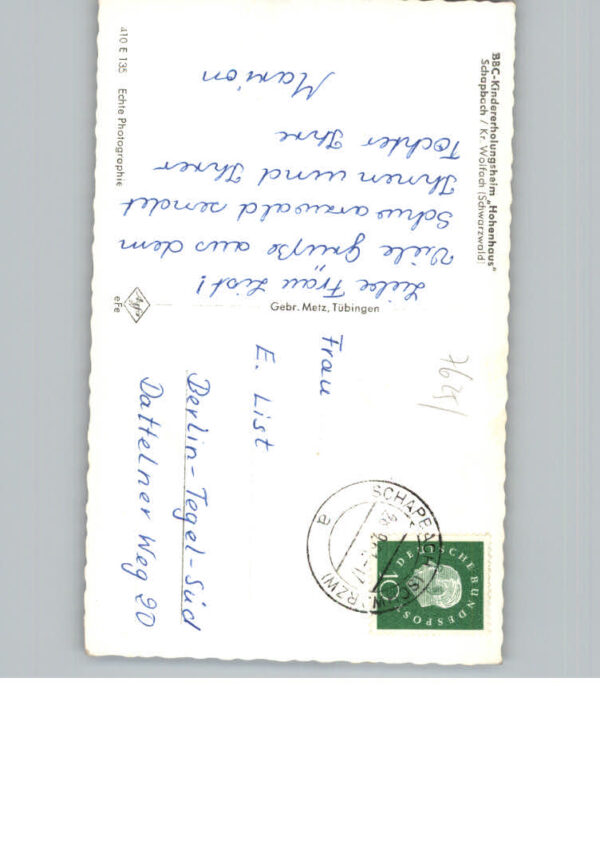 BBC-Kindererholungsheim „Hohenhaus"
Schapbach / Kr. Wolfach (Schwarzwald)
Liebe Frau List!
Viele Grüße aus dem
Schwarzwald sendet
Ihnen und Ihrer
Tochter Ihre
Marion
410 E 135 Echte Photographie
Agfa
eFe
Gebr. Metz, Tübingen
7625/
SCHAPBACH (SCHWARZW)
a
DEUTSCHE BUNDESPOST
10
Frau
E. List
Berlin-Tegel-Süd
Dattelner Weg 20